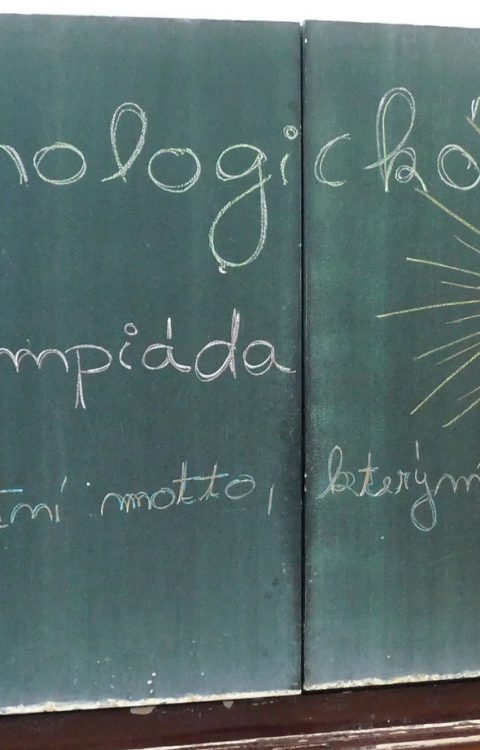 nologická
mpiáda
tní motto, kterým